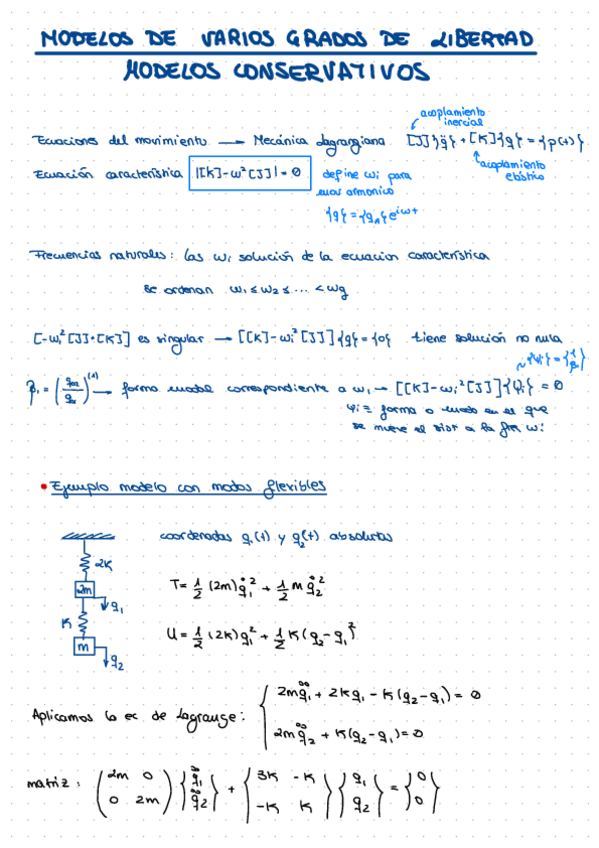 MODELOS DE VARIOS GRADOS DE LIBERTAD
MODELOS CONSERVATIVOS
acoplamiento
inercial
Ecuaciones del movimiento → Mecánica Lagrangiana [J]{q̈} + [K]{q} = {p(t)}
acoplamiento
elástico
Ecuación característica |[K]-ω²[J]| = 0 define ωi para
mov armonico
{q} = {qₐ}e^iωt
Frecuencias naturales: las ωi solución de la ecuacion característica
se ordenan ω1 ≤ ω2 ≤ ... < ωg
[-ωi²[J]+[K]] es singular → [[K]-ωi²[J]]{q}={0} tiene solución no nula
~{ψi} = {1 β}
βi = (qa2/qa1)^(i) → forma modal correspondiente a ωi → [[K]-ωi²[J]]{ψi} = 0
ψi ≡ forma o modo en el que
se mueve el sist a la frec ωi
• Ejemplo modelo con modos flexibles
coordenadas q1(t) y q2(t) absolutas
2K
2m
q1
K
m
q2
T = 1/2 (2m) q̇1² + 1/2 m q̇2²
U = 1/2 (2K) q1² + 1/2 K (q2 - q1)²
Aplicamos la ec de Lagrange:
2m q̈1 + 2K q1 - K(q2 - q1) = 0
2m q̈2 + K(q2 - q1) = 0
matriz: (2m 0 / 0 2m) {q̈1 / q̈2} + {3K -K / -K K} {q1 / q2} = {0 / 0}